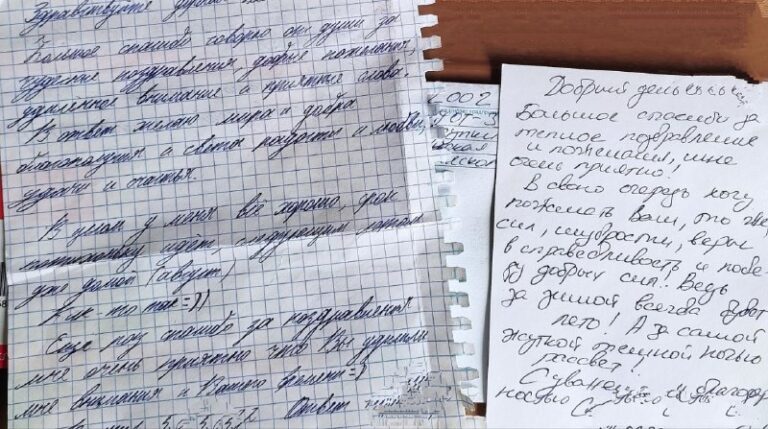 Здравствуйте
Большое спасибо говорю от души за
чудесные поздравления, добрые пожелания,
уделённое внимание и приятные слова.
В ответ желаю мира и добра
благополучия и света радости и любви,
удачи и счастья.
В целом у меня всё хорошо, срок
потихоньку идёт, следующим летом
уже домой (август)
Как-то так =))
Ещё раз спасибо за поздравления
мне очень приятно что Вы уделили
мне внимания и Вашего времени =)
Ответ
002
Добрый день
Большое спасибо за
теплое поздравление
и пожелания, мне
очень приятно!
В свою очередь хочу
пожелать вам, это
сил, мудрости, веры
в справедливость и побе-
ду добрых сил. Ведь
за зимой всегда будет
лето! А за самой
жуткой темной ночью
рассвет!
С уважен и благодар
ностью